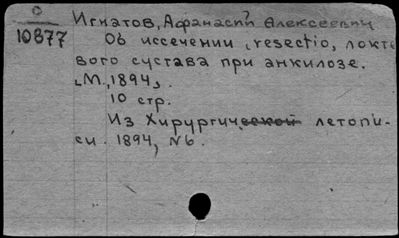 О
10877
Игнатов, Афанасий Алексеевич
Об иссечении, resectio, локте
вого сустава при анкилозе.
М., 1894,.
10 стр.
Из Хирургической летопи-
си. 1894, №6.